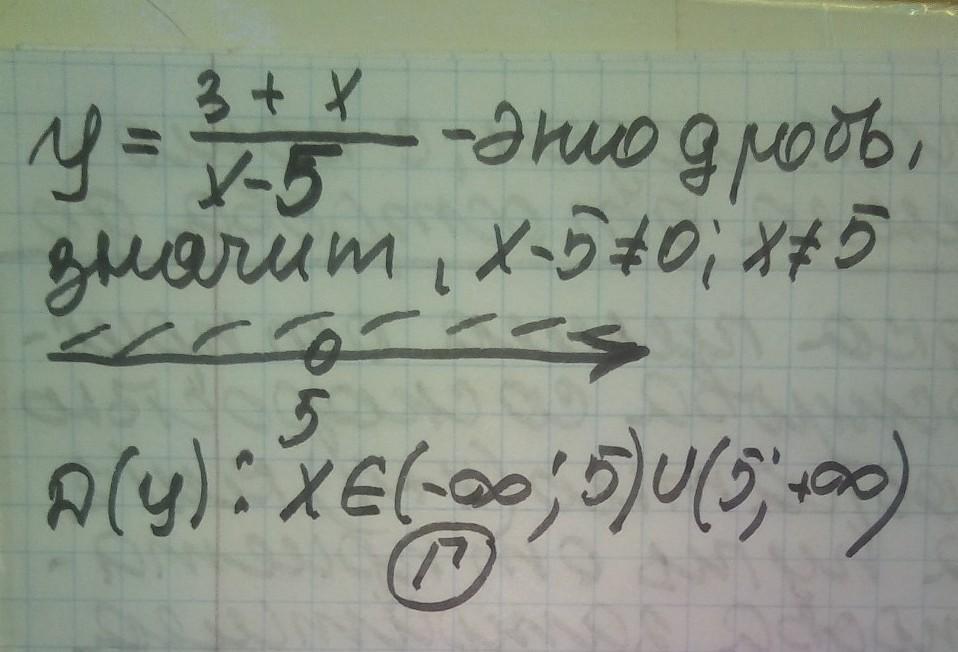 y = (3 + x)/(x-5) - это дробь,
значит, x-5≠0; x≠5
5
D(y): x∈(-∞; 5)∪(5; +∞)
Г